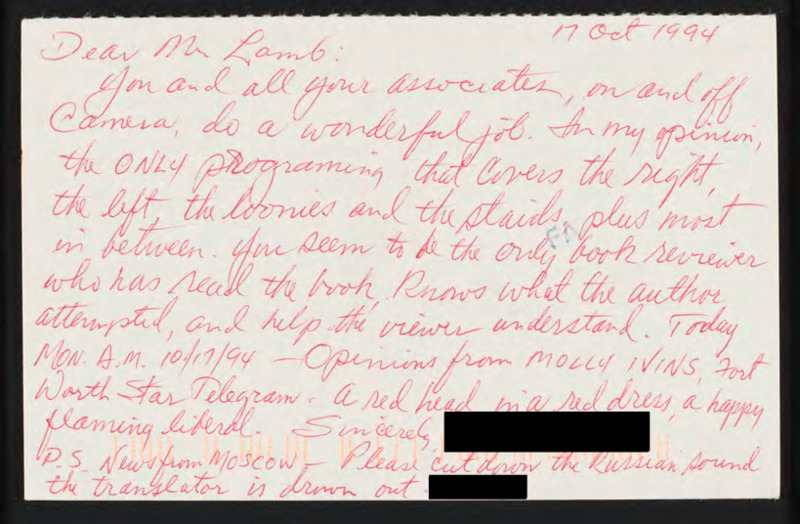 17 Oct 1994
Dear Mr Lamb:
You and all your associates, on and off
Camera, do a wonderful job. In my opinion,
the ONLY programing that covers the right,
the left, the loonies and the staids, plus most
FA
in between. You seem to be the only book reviewer
who has read the book, knows what the author
attempted, and help the viewer understand. Today
MON. A.M. 10/17/94 – Opinions from MOLLY IVINS, Fort
Worth Star Telegram. A red head, in a red dress, a happy
flaming liberal. Sincerely,
P.S. News from MOSCOW – Please cut down the Russian sound
the translator is drown out.